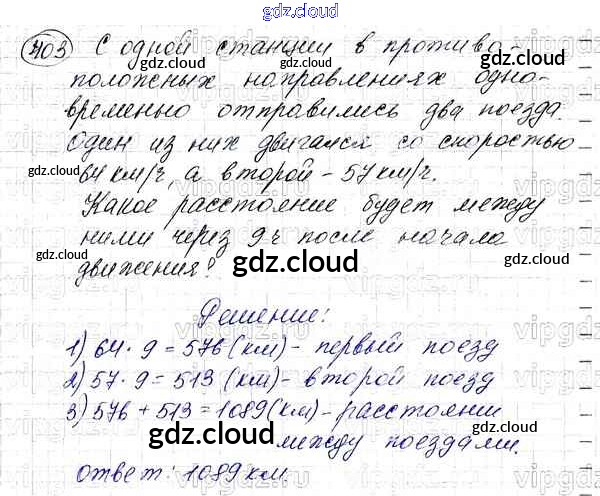 gdz.cloud
403 С одной станции в противо-
gdz.cloud
положных направлениях одно-
временно отправились два поезда.
gdz.cloud
Один из них двигался со скоростью
gdz.cloud gdz.cloud
64 км/ч, а второй - 57 км/ч.
Какое расстояние будет между
ними через 9 ч после начала
gdz.cloud
движения?
gdz.cloud
Решение:
vipgdz.ru
1) 64 · 9 = 576 (км) - первый поезд
2) 57 · 9 = 513 (км) - второй поезд
gdz.cloud gdz.cloud
3) 576 + 513 = 1089 (км) - расстоянии
gdz.cloud
между поездами.
ответ: 1089 км.
gdz.cloud